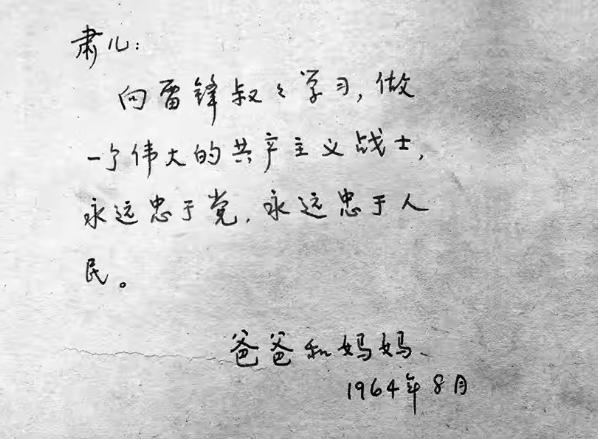 肃儿：
向雷锋叔々学习，做
一个伟大的共产主义战士，
永远忠于党，永远忠于人
民。
爸爸和妈妈
1964年8月